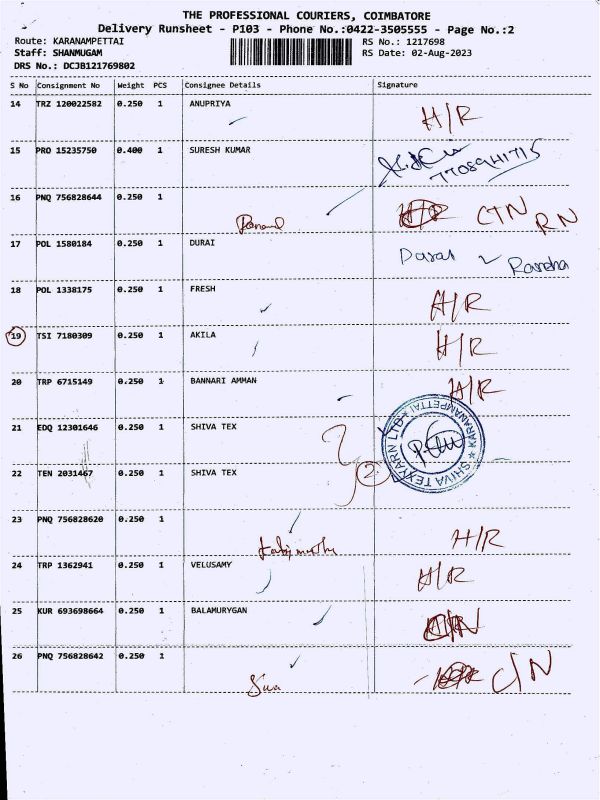 THE PROFESSIONAL COURIERS, COIMBATORE
Delivery Runsheet - P103 - Phone No.:0422-3505555 - Page No.:2
Route: KARANAMPETTAI
RS No.: 1217698
Staff: SHANMUGAM
RS Date: 02-Aug-2023
DRS No.: DCJB121769802
S No Consignment No Weight PCS Consignee Details Signature
14 TRZ 120022582 0.250 1 ANUPRIYA H/R
15 PRO 15235750 0.400 1 SURESH KUMAR
16 PNQ 756828644 0.250 1 CTN RN
17 POL 1580184 0.250 1 DURAI
18 POL 1338175 0.250 1 FRESH H/R
19 TSI 7180309 0.250 1 AKILA H/R
20 TRP 6715149 0.250 1 BANNARI AMMAN H/R
21 EDQ 12301646 0.250 1 SHIVA TEX
SHIVA TEXYARN LTD. KARANAMPETTAI
22 TEN 2031467 0.250 1 SHIVA TEX 2
23 PNQ 756828620 0.250 1 H/R
24 TRP 1362941 0.250 1 VELUSAMY H/R
25 KUR 693698664 0.250 1 BALAMURYGAN
26 PNQ 756828642 0.250 1 Siva